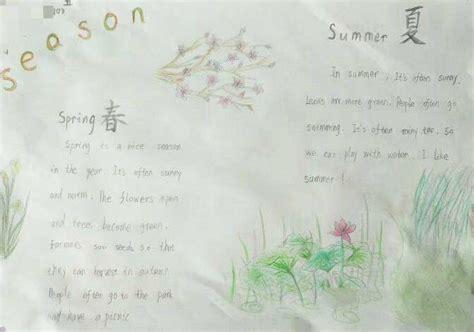 season
Spring 春
Spring is a nice season
in the year. It's often sunny
and warm. The flowers open
and trees become green.
Farmers sow seeds so that
they can harvest in autumn.
People often go to the park
and have a picnic
Summer 夏
In summer, It's often sunny.
are more green. People often go
swimming. It's often rainy, too. So
we can play with water. I like
summer!